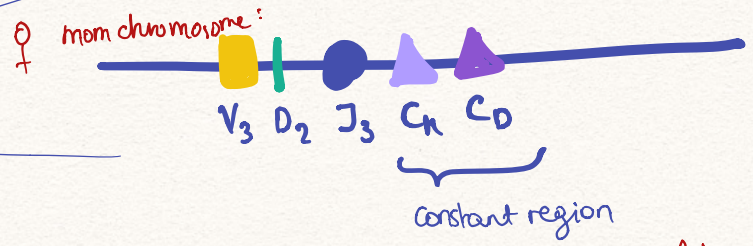 ♀ mom chromosome:
V₃ D₂ J₃ Cₙ C_D
constant region